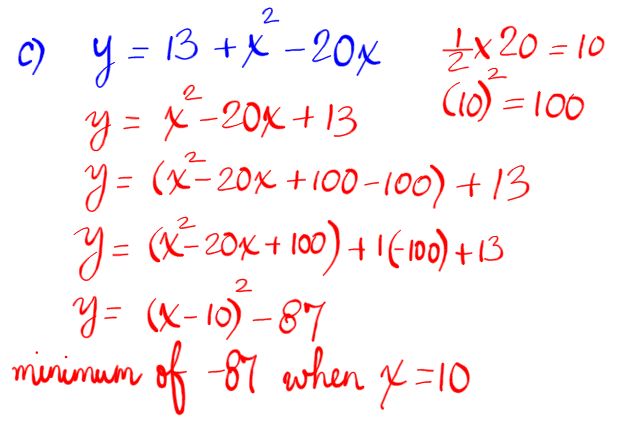 c) y = 13 + x² - 20x
½ x 20 = 10
(10)² = 100
y = x² - 20x + 13
y = (x² - 20x + 100 - 100) + 13
y = (x² - 20x + 100) + 1(-100) + 13
y = (x - 10)² - 87
minimum of -87 when x = 10